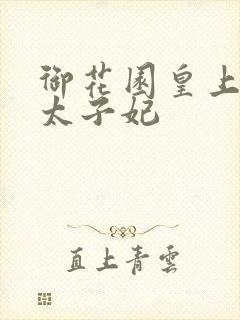 御花园皇上
太子妃
直上青雲